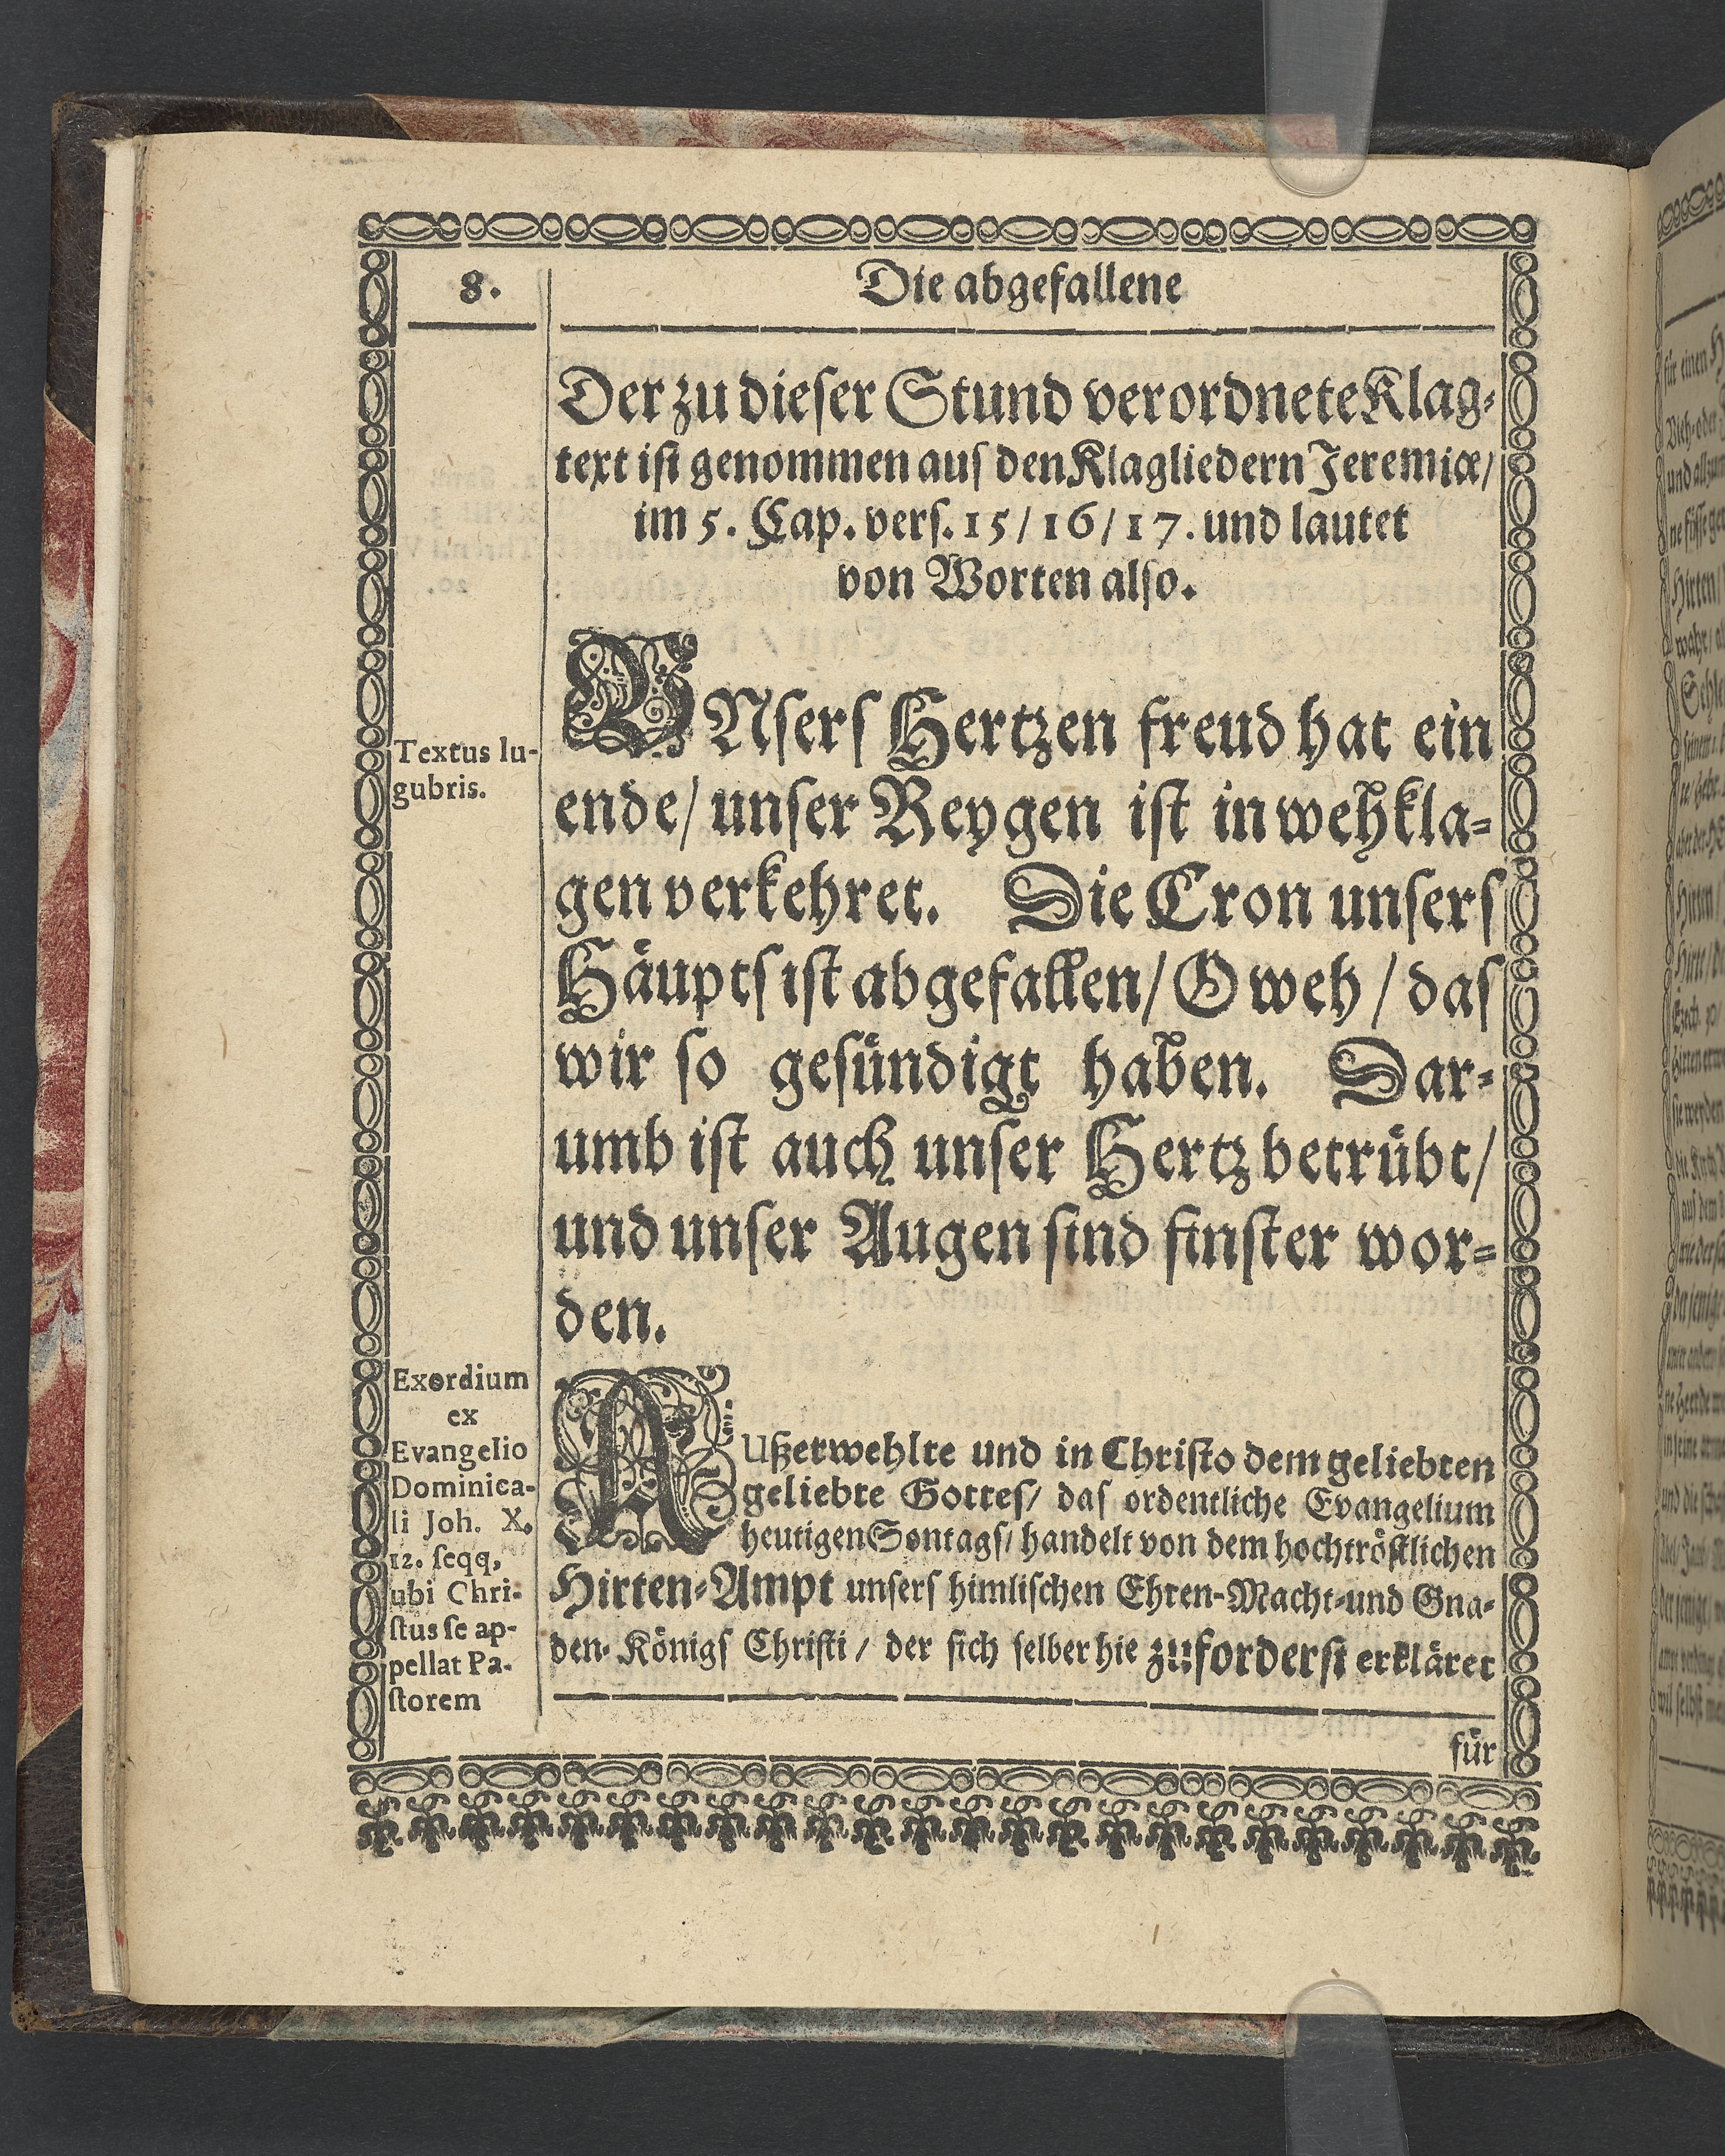 8.
Die abgefallene
Der zu dieser Stund verordnete Klag-
text ist genommen aus den Klagliedern Jeremiæ/
im 5. Cap. vers. 15/16/17. und lautet
von Worten also.
Textus lu-
gubris.
VNsers Hertzen freud hat ein
ende/ unser Reygen ist in wehkla-
gen verkehret. Die Cron unsers
Häupts ist abgefallen/ O weh/ das
wir so gesündigt haben. Dar-
umb ist auch unser Hertz betrübt/
und unser Augen sind finster wor-
den.
Exordium
ex
Evangelio
Dominica-
li Joh. X.
12. seqq.
ubi Chri-
stus se ap-
pellat Pa-
storem
AUßerwehlte und in Christo dem geliebten
geliebte Gottes/ das ordentliche Evangelium
heutigen Sontags/ handelt von dem hochtröstlichen
Hirten-Ampt unsers himlischen Ehren-Macht-und Gna-
den-Königs Christi/ der sich selber hie zuforderst erkläret
für